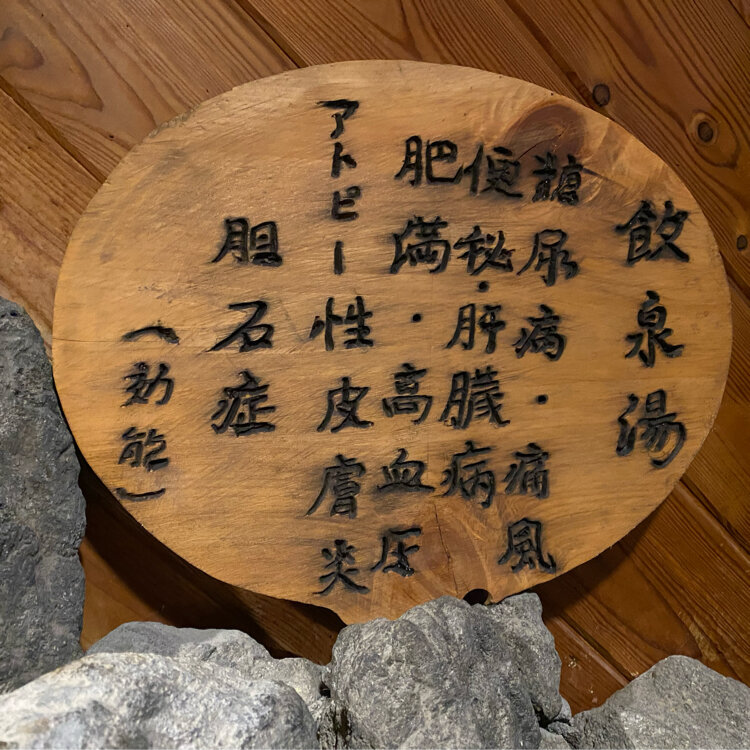 飲泉湯
糖尿病・痛風
便秘・肝臓病
肥満・高血圧
アトピー性皮膚炎
胆石症
（効能）